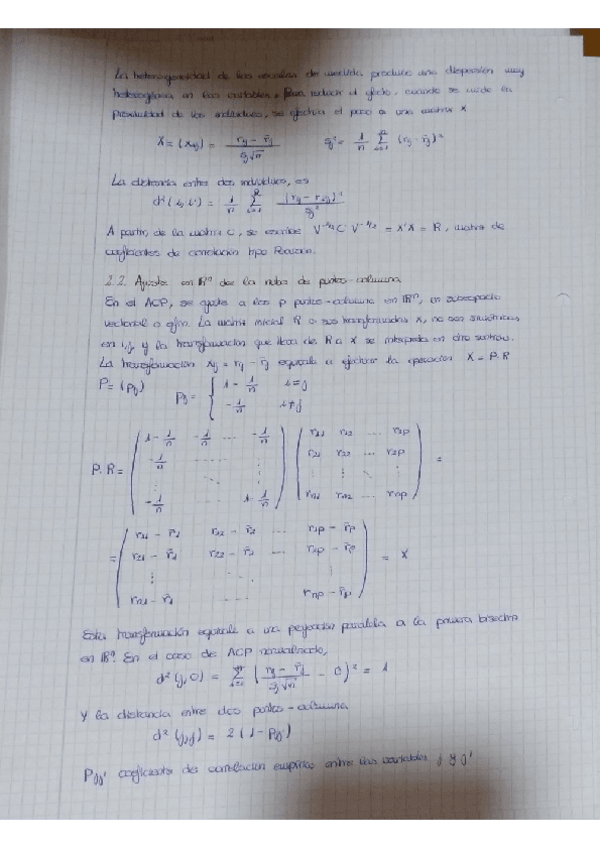 La heterogeneidad de las escalas de medida produce una dispersión muy
heterogénea en las variables. Para reducir el efecto, cuando se mide la
proximidad de los individuos, se efectúa el paso a una matriz X
X = (xij) = (rij - r̄j) / (sj√n)    sj² = 1/n Σ (rij - r̄j)²
La distancia entre dos individuos, es
d²(i, i') = 1/n Σ (rij - ri'j)² / sj²
A partir de la matriz C, se escribe V^-1/2 C V^-1/2 = X'X = R, matriz de
coeficientes de correlación tipo Pearson.
2.2. Ajuste en ℝⁿ de la nube de puntos-columna
En el ACP, se ajusta a los p puntos-columna en ℝⁿ, un subespacio
vectorial o afín. La matriz inicial R o sus transformadas X, no son simétricas
en i,j y la transformación que lleva de R a X se interpreta en otro sentido.
La transformación xij = rij - r̄j equivale a efectuar la operación X = P·R
P = (pij)    pij = { 1 - 1/n    i=j
- 1/n    i≠j
P·R = ( 1 - 1/n  - 1/n  ...  - 1/n ) ( r11  r12  ...  r1p )
( - 1/n  ...  ⋮ ) ( r21  r22  ...  r2p ) =
( ⋮  ⋱  ⋮ ) ( ⋮  ⋮  ⋱  ⋮ )
( - 1/n  ...  1 - 1/n ) ( rn1  rn2  ...  rnp )
= ( r11 - r̄1  r12 - r̄2  ...  r1p - r̄p )
( r21 - r̄1  r22 - r̄2  ...  r2p - r̄p ) = X
( ⋮  ⋱  ⋮ )
( rn1 - r̄1  rnp - r̄p )
Esta transformación equivale a una proyección paralela a la primera bisectriz
en ℝⁿ. En el caso de ACP normalizado,
d²(j, 0) = Σ ( (rij - r̄j) / (sj√n) - 0 )² = 1
Y la distancia entre dos puntos-columna
d²(j, j') = 2 (1 - ρjj')
ρjj' coeficiente de correlación empírico entre las variables j y j'